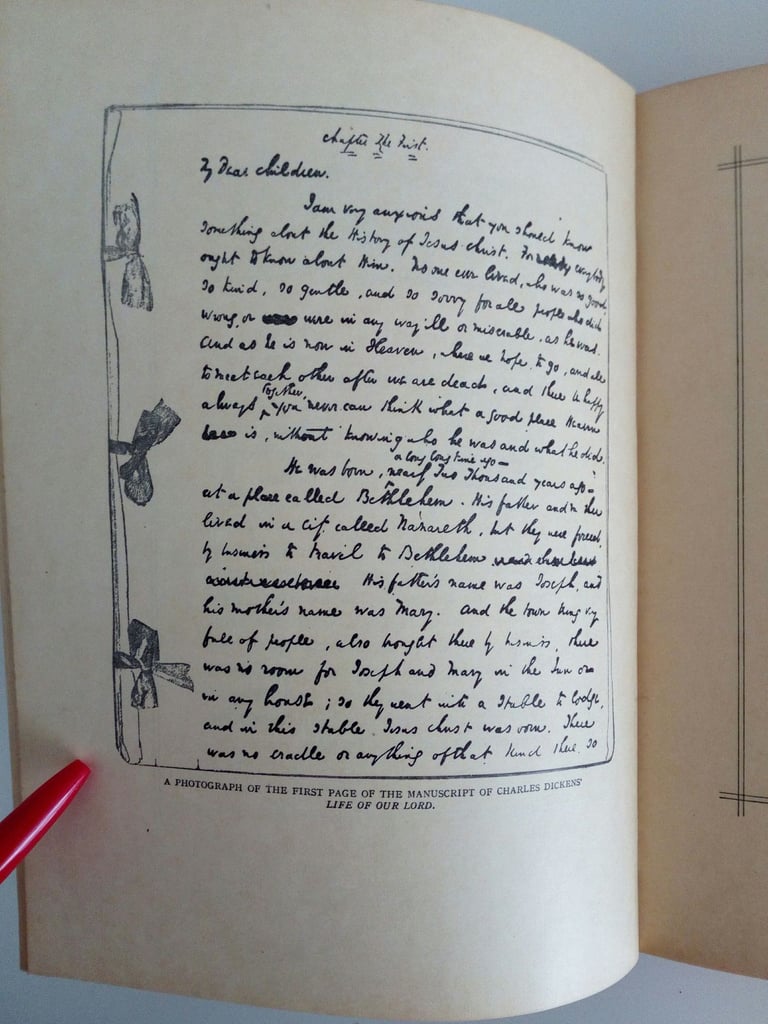 Chapter The First.
My Dear Children.
I am very anxious that you should know
something about the History of Jesus Christ. For everybody
ought to know about Him. No one ever lived, who was so good,
so kind, so gentle, and so sorry for all people who did
wrong, or were in any way ill or miserable, as he was.
And as he is now in Heaven, where we hope to go, and all
to meet each other after we are dead, and there be happy
always together, You never can think what a good place Heaven
is, without knowing who he was and what he did.
He was born, a long long time ago— nearly Two Thousand years ago—
at a place called Bethlehem. His father and mother
lived in a City called Nazareth, but they were forced,
by business to travel to Bethlehem
His father's name was Joseph, and
his mother's name was Mary. And the town being very
full of people, also brought there by business, there
was no room for Joseph and Mary in the Inn or
in any house; so they went into a Stable to lodge,
and in this stable Jesus Christ was born. There
was no cradle or anything of that kind there, so
A PHOTOGRAPH OF THE FIRST PAGE OF THE MANUSCRIPT OF CHARLES DICKENS'
LIFE OF OUR LORD.